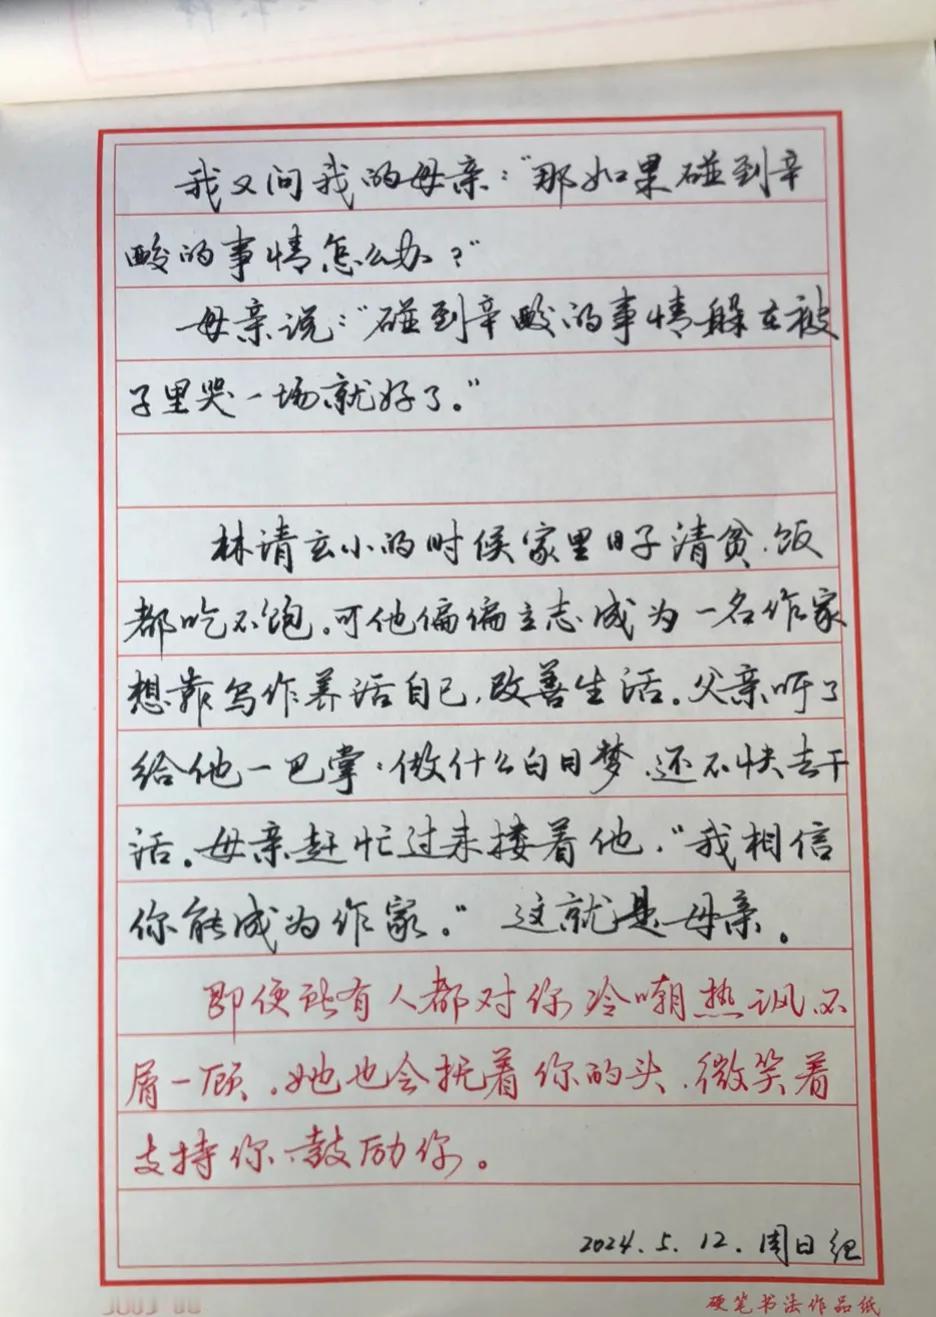 我又问我的母亲："那如果碰到辛
酸的事情怎么办？"
母亲说："碰到辛酸的事情躲在被
子里哭一场就好了。"
林请玄小的时候家里日子清贫，饭
都吃不饱。可他偏偏立志成为一名作家
想靠写作养活自己，改善生活。父亲呼了
给他一巴掌：做什么白日梦，还不快去干
活。母亲赶忙过来搂着他，"我相信
你能成为作家。" 这就是母亲。
即便所有人都对你冷嘲热讽、不
屑一顾，她也会抚着你的头，微笑着
支持你、鼓励你。
2024.5.12.周日
硬笔书法作品纸